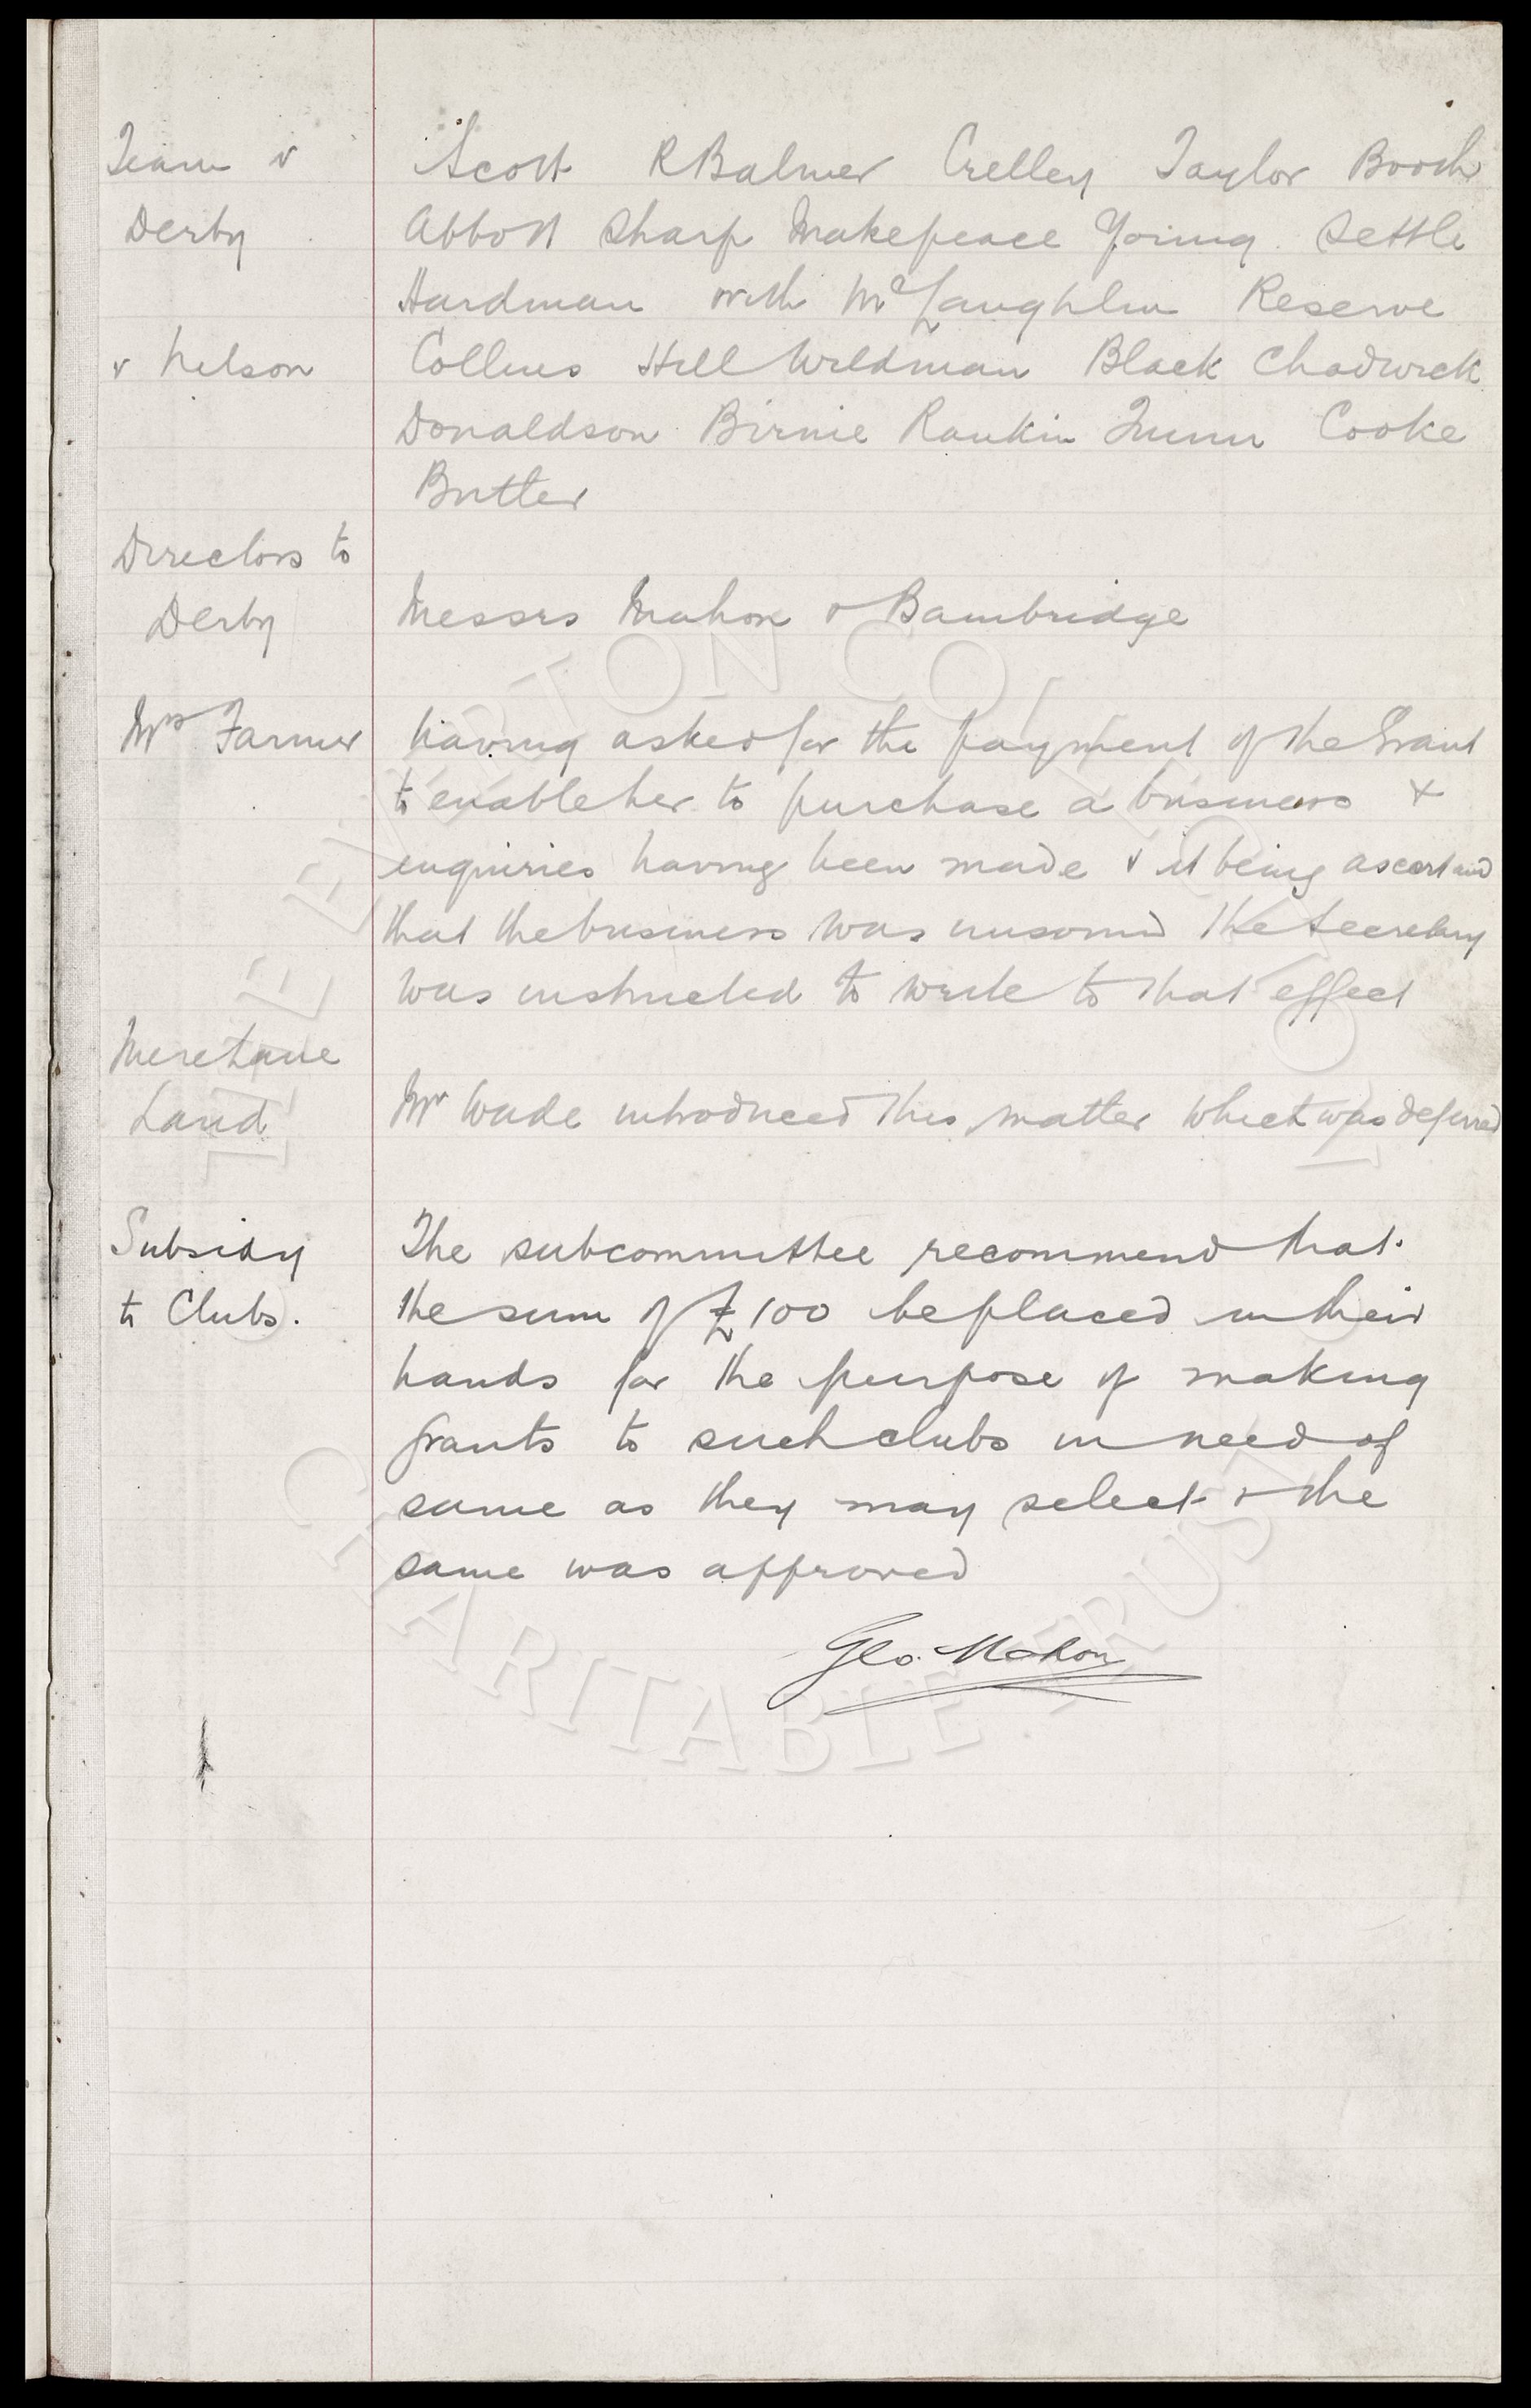 Team v
Derby
Scott R Balmer Crelley Taylor Booth
Abbott Sharp Makepeace Young Settle
Hardman with McLaughlin Reserve
v Nelson
Collins Hill Wildman Black Chadwick
Donaldson Birnie Rankin Quinn Cooke
Butler
Directors to
Derby
Messrs Mahon & Bainbridge
Mrs Farmer
having asked for the payment of the Grant
to enable her to purchase a business &
enquiries having been made & it being ascertained
that the business was unsound the Secretary
was instructed to write to that effect
Mere Lane
Land
Mr Wade introduced this matter which was deferred
Subsidy
to Clubs.
The subcommittee recommend that
the sum of £100 be placed in their
hands for the purpose of making
grants to such clubs in need of
same as they may select & the
same was approved
Geo. Mahon
THE EVERTON COLLECTION
CHARITABLE TRUST